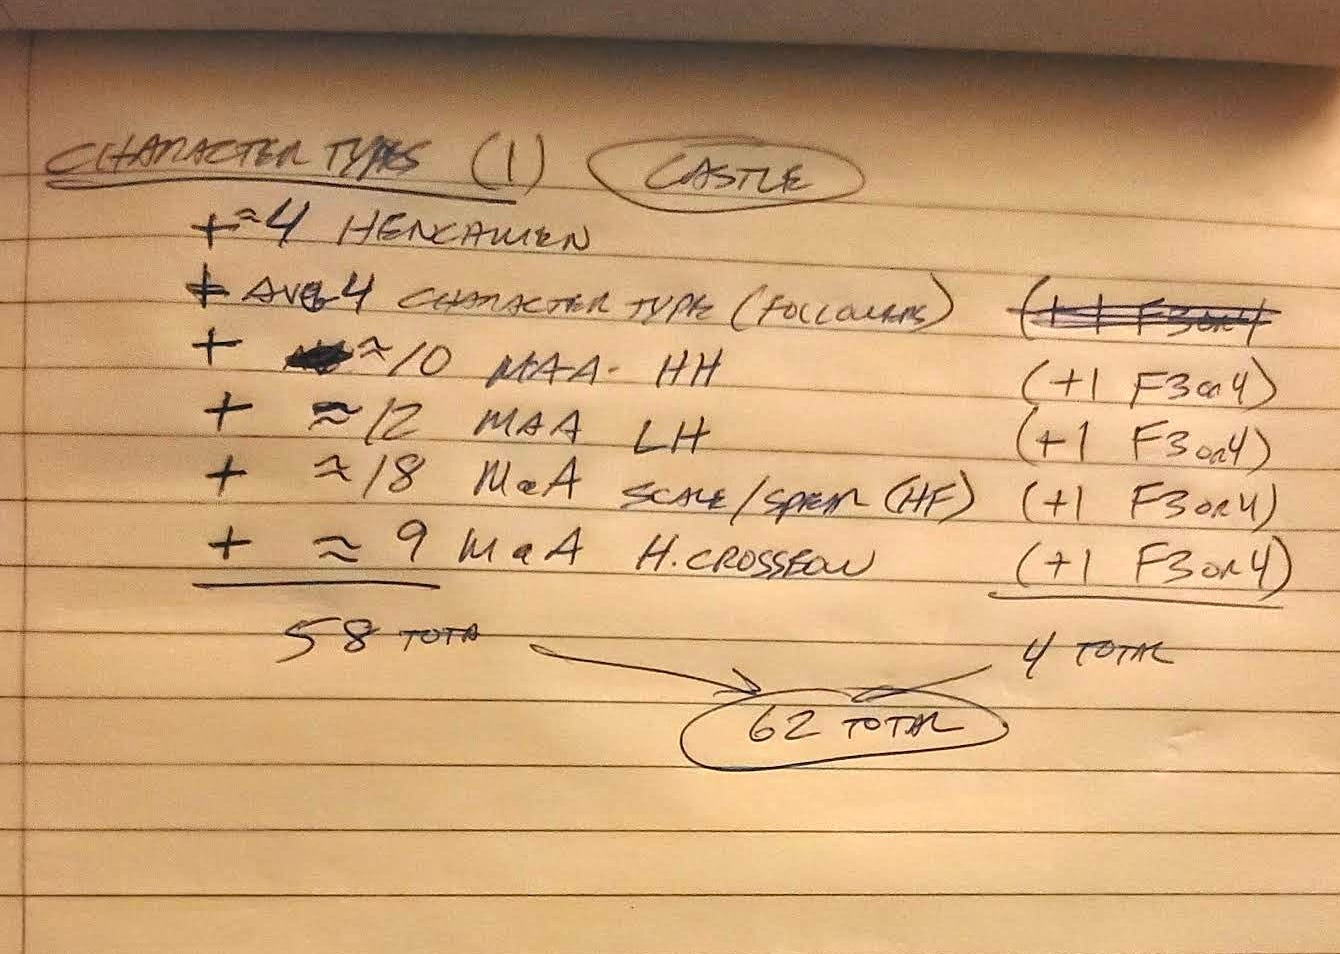 CHARACTER TYPES (1) CASTLE
+ ≈4 HENCHMEN
+ AVG 4 CHARACTER TYPE (FOLLOWERS) (+1 F3 or 4
+ ≈10 MAA- HH (+1 F3 or 4)
+ ≈12 MAA LH (+1 F3 or 4)
+ ≈18 MaA SCALE/SPEAR (HF) (+1 F3 OR 4)
+ ≈ 9 MaA H. CROSSBOW (+1 F3 OR 4)
58 TOTA 4 TOTAL
62 TOTAL